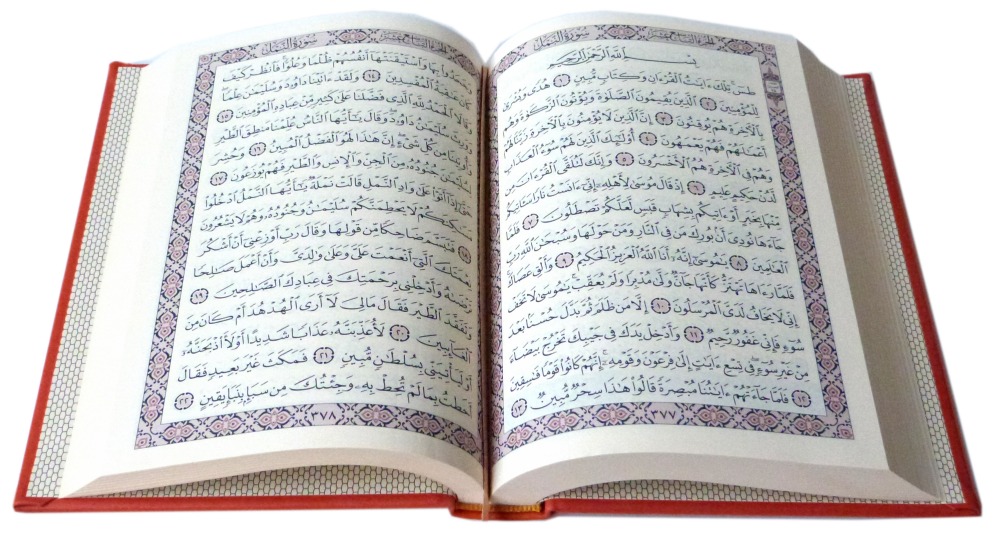 الجزء التاسع عشر سورة النمل
بِسْمِ اللَّهِ الرَّحْمَٰنِ الرَّحِيمِ
طسٓ تِلْكَ ءَايَٰتُ الْقُرْءَانِ وَكِتَابٍ مُّبِينٍ ١ هُدًى وَبُشْرَىٰ
لِلْمُؤْمِنِينَ ٢ الَّذِينَ يُقِيمُونَ الصَّلَوٰةَ وَيُؤْتُونَ الزَّكَوٰةَ وَهُم
بِالْأَخِرَةِ هُمْ يُوقِنُونَ ٣ إِنَّ الَّذِينَ لَا يُؤْمِنُونَ بِالْأَخِرَةِ زَيَّنَّا لَهُمْ
أَعْمَٰلَهُمْ فَهُمْ يَعْمَهُونَ ٤ أُولَٰٓئِكَ الَّذِينَ لَهُمْ سُوٓءُ الْعَذَابِ
وَهُمْ فِي الْأَخِرَةِ هُمُ الْأَخْسَرُونَ ٥ وَإِنَّكَ لَتُلَقَّى الْقُرْءَانَ مِن
لَّدُنْ حَكِيمٍ عَلِيمٍ ٦ إِذْ قَالَ مُوسَىٰ لِأَهْلِهِ إِنِّيٓ ءَانَسْتُ نَارًا سَـَٔاتِيكُم
مِّنْهَا بِخَبَرٍ أَوْ ءَاتِيكُم بِشِهَابٍ قَبَسٍ لَّعَلَّكُمْ تَصْطَلُونَ ٧ فَلَمَّا
جَآءَهَا نُودِيَ أَنۢ بُورِكَ مَن فِي النَّارِ وَمَنْ حَوْلَهَا وَسُبْحَٰنَ اللَّهِ رَبِّ
الْعَٰلَمِينَ ٨ يَٰمُوسَىٰٓ إِنَّهُ أَنَا اللَّهُ الْعَزِيزُ الْحَكِيمُ ٩ وَأَلْقِ عَصَاكَ
فَلَمَّا رَءَاهَا تَهْتَزُّ كَأَنَّهَا جَآنٌّ وَلَّىٰ مُدْبِرًا وَلَمْ يُعَقِّبْ يَٰمُوسَىٰ لَا تَخَفْ
إِنِّي لَا يَخَافُ لَدَيَّ الْمُرْسَلُونَ ١٠ إِلَّا مَن ظَلَمَ ثُمَّ بَدَّلَ حُسْنًۢا بَعْدَ
سُوٓءٍ فَإِنِّي غَفُورٌ رَّحِيمٌ ١١ وَأَدْخِلْ يَدَكَ فِي جَيْبِكَ تَخْرُجْ بَيْضَآءَ
مِنْ غَيْرِ سُوٓءٍ فِي تِسْعِ ءَايَٰتٍ إِلَىٰ فِرْعَوْنَ وَقَوْمِهِ إِنَّهُمْ كَانُوا قَوْمًا فَٰسِقِينَ
١٢ فَلَمَّا جَآءَتْهُمْ ءَايَٰتُنَا مُبْصِرَةً قَالُوا هَٰذَا سِحْرٌ مُّبِينٌ ١٣
٣٧٧
الجزء التاسع عشر سورة النمل
وَجَحَدُوا بِهَا وَاسْتَيْقَنَتْهَآ أَنفُسُهُمْ ظُلْمًا وَعُلُوًّا فَانظُرْ كَيْفَ
كَانَ عَٰقِبَةُ الْمُفْسِدِينَ ١٤ وَلَقَدْ ءَاتَيْنَا دَاوُۥدَ وَسُلَيْمَٰنَ عِلْمًا
وَقَالَا الْحَمْدُ لِلَّهِ الَّذِي فَضَّلَنَا عَلَىٰ كَثِيرٍ مِّنْ عِبَادِهِ الْمُؤْمِنِينَ ١٥
وَوَرِثَ سُلَيْمَٰنُ دَاوُۥدَ وَقَالَ يَٰٓأَيُّهَا النَّاسُ عُلِّمْنَا مَنطِقَ الطَّيْرِ
وَأُوتِينَا مِن كُلِّ شَيْءٍ إِنَّ هَٰذَا لَهُوَ الْفَضْلُ الْمُبِينُ ١٦ وَحُشِرَ
لِسُلَيْمَٰنَ جُنُودُهُ مِنَ الْجِنِّ وَالْإِنسِ وَالطَّيْرِ فَهُمْ يُوزَعُونَ ١٧
حَتَّىٰٓ إِذَآ أَتَوْا عَلَىٰ وَادِ النَّمْلِ قَالَتْ نَمْلَةٌ يَٰٓأَيُّهَا النَّمْلُ ادْخُلُوا
مَسَٰكِنَكُمْ لَا يَحْطِمَنَّكُمْ سُلَيْمَٰنُ وَجُنُودُهُ وَهُمْ لَا يَشْعُرُونَ
١٨ فَتَبَسَّمَ ضَاحِكًا مِّن قَوْلِهَا وَقَالَ رَبِّ أَوْزِعْنِيٓ أَنْ أَشْكُرَ
نِعْمَتَكَ الَّتِيٓ أَنْعَمْتَ عَلَيَّ وَعَلَىٰ وَٰلِدَيَّ وَأَنْ أَعْمَلَ صَٰلِحًا
تَرْضَىٰهُ وَأَدْخِلْنِي بِرَحْمَتِكَ فِي عِبَادِكَ الصَّٰلِحِينَ ١٩
وَتَفَقَّدَ الطَّيْرَ فَقَالَ مَالِيَ لَآ أَرَى الْهُدْهُدَ أَمْ كَانَ مِنَ
الْغَآئِبِينَ ٢٠ لَأُعَذِّبَنَّهُ عَذَابًا شَدِيدًا أَوْ لَأَاذْبَحَنَّهُ
أَوْ لَيَأْتِيَنِّي بِسُلْطَٰنٍ مُّبِينٍ ٢١ فَمَكَثَ غَيْرَ بَعِيدٍ فَقَالَ
أَحَطتُ بِمَا لَمْ تُحِطْ بِهِ وَجِئْتُكَ مِن سَبَإٍۭ بِنَبَإٍ يَقِينٍ ٢٢
٣٧٨